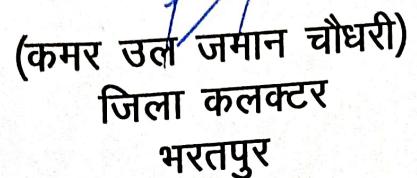 (कमर उल जमान चौधरी)
जिला कलक्टर
भरतपुर